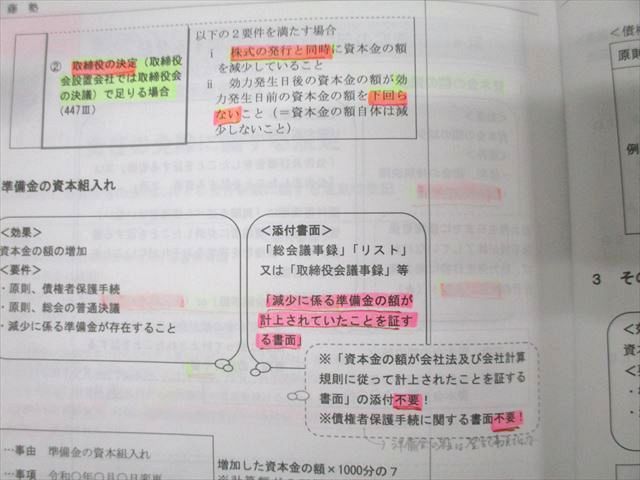 ② 取締役の決定（取締役
会設置会社では取締役会
の決議）で足りる場合
(447Ⅲ)
以下の２要件を満たす場合
ⅰ 株式の発行と同時に資本金の額
を減少していること
ⅱ 効力発生日後の資本金の額が効
力発生日前の資本金の額を下回ら
ないこと（＝資本金の額自体は減
少しないこと）
準備金の資本組入れ
＜効果＞
資本金の額の増加
＜要件＞
・原則、債権者保護手続
・原則、総会の普通決議
・減少に係る準備金が存在すること
＜添付書面＞
「総会議事録」「リスト」
又は「取締役会議事録」等
「減少に係る準備金の額が
計上されていたことを証す
る書面」
※「資本金の額が会社法及び会社計算
規則に従って計上されたことを証する
書面」の添付不要！
※債権者保護手続に関する書面不要！
…事由 準備金の資本組入れ
…事項 令和〇年〇月〇日変更
増加した資本金の額×1000分の７
＜債権
原則
例
３ その